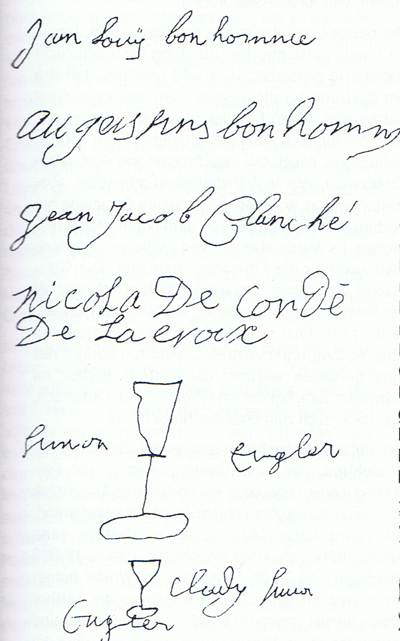 Jan Louÿ bonhomme
augustins bonhomm
Jean Jacob Clanché
nicola De Condé
De Lacroix
Simon Engler
Clady simon
Engler